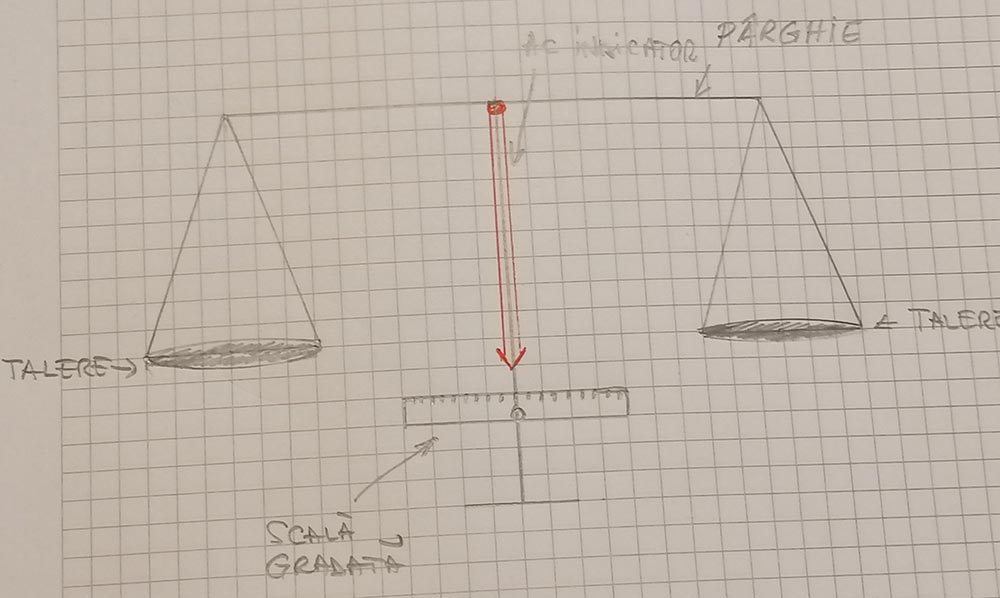 AC INDICATOR PÂRGHIE
TALERE
TALERE
SCALĂ
GRADATA